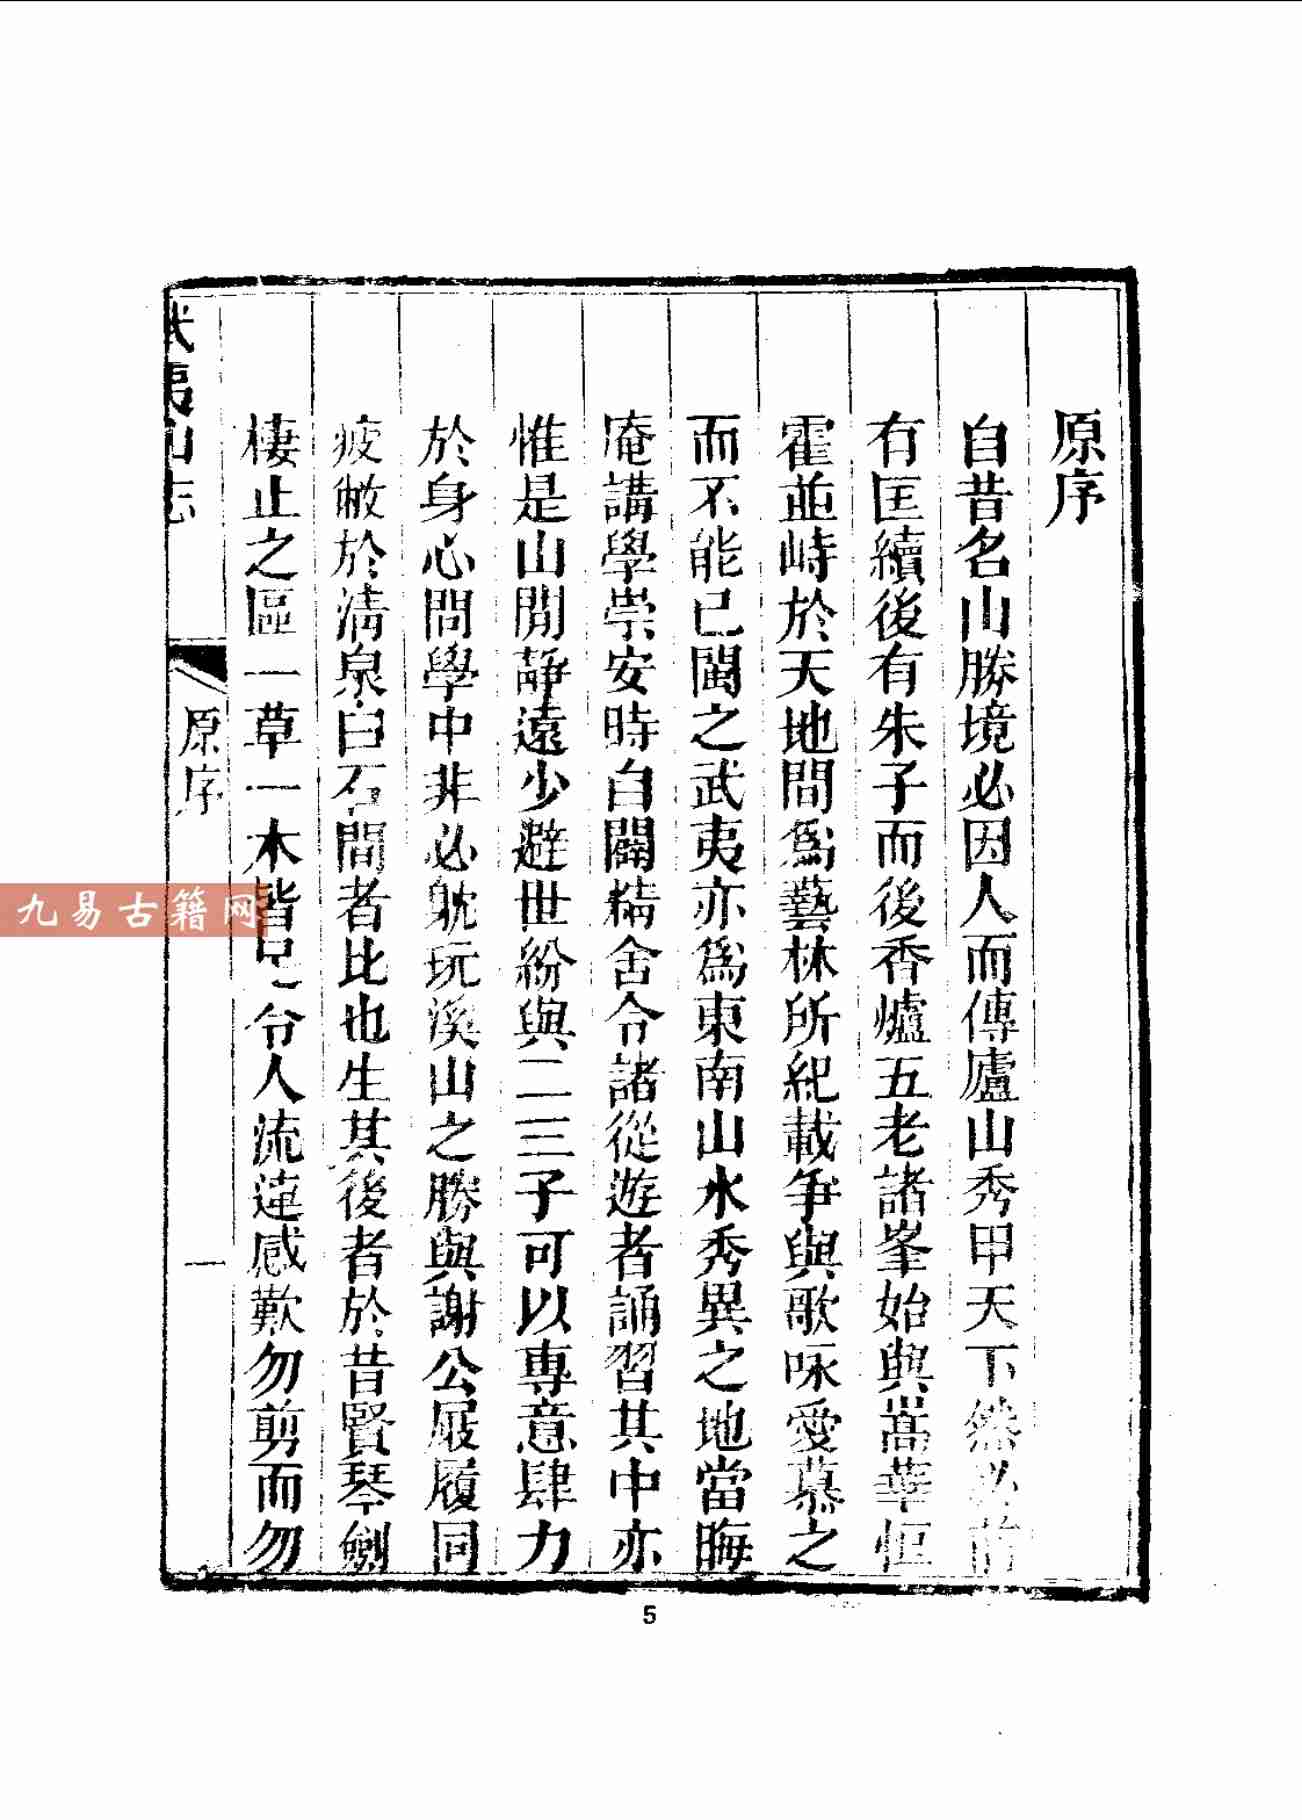 原序
自昔名山勝境必因人而傳廬山秀甲天下然必前
有匡續後有朱子而後香爐五老諸峯始與嵩華恒
霍並峙於天地間爲藝林所紀載爭與歌咏愛慕之
而不能已閩之武夷亦爲東南山水秀異之地當晦
庵講學崇安時自闢精舍令諸從遊者誦習其中亦
惟是山閒靜遠少避世紛與二三子可以專意肆力
於身心問學中非必躭玩溪山之勝與謝公屐履同
疲敝於清泉白石間者比也生其後者於昔賢琴劍
棲止之區一草一木皆足令人流連感歎勿剪而勿
武夷山志
原序
一
九易古籍网
5